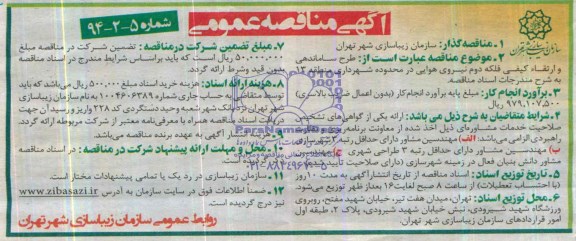 آگهی مناقصه عمومی
شماره ۵-۲-۹۴
سازمان زیباسازی شهر تهران
۱. مناقصه‌گذار: سازمان زیباسازی شهر تهران
۲. موضوع مناقصه عبارت است از: طرح ساماندهی
و ارتقاء کیفیتی فلکه دوم نیروی هوایی در محدوده شهرداری منطقه ۱۳
به شرح مندرجات اسناد مناقصه.
۳. برآورد انجام کار: مبلغ پایه برآورد انجام کار (بدون اعمال ضریب بالاسری)
۹۷۹,۱۰۷,۵۰۰ ریال
۴. شرایط متقاضیان به شرح ذیل می باشد: ارائه یکی از گواهی‌های تشخیص
صلاحیت خدمات مشاوره‌ای ذیل اخذ شده از معاونت برنامه‌ریزی
راهبردی الزامی می‌باشد: الف) مهندسین مشاور دارای حداقل رتبه
ب) مهندسین مشاور دارای حداقل رتبه ۳ طراحی شهری ج)
مشاور دانش بنیان فعال در زمینه شهرسازی (دارای صلاحیت
۵. تاریخ توزیع اسناد: اسناد مناقصه از تاریخ انتشار آگهی به مدت ۱۰ روز
(با احتساب تعطیلات) از ساعت ۸ صبح لغایت ۱۶ بعداز ظهر توزیع می‌شود.
۶. محل توزیع اسناد: تهران، میدان هفت تیر، خیابان شهید مفتح، روبروی
ورزشگاه شهید شیرودی، نبش خیابان شهید شیرودی، پلاک ۲، طبقه اول
امور قراردادهای سازمان زیباسازی شهر تهران.
۷. مبلغ تضمین شرکت در مناقصه: تضمین شرکت در مناقصه مبلغ
۵۰,۰۰۰,۰۰۰ ریال است که باید براساس شرایط مندرج در اسناد مناقصه
بدون قید وشرط ارائه گردد.
۸. هزینه ارائه اسناد: هزینه خرید اسناد مبلغ ۵۰۰,۰۰۰ ریال می‌باشد که باید
توسط متقاضی به حساب جاری شماره ۱۰۰۴۶۰۶۳۸۹ به نام سازمان زیباسازی
شهر تهران در بانک شهر شعبه وحید دستگردی کد ۲۲۸ واریز و رسید آن جهت
دریافت اسناد مناقصه همراه با معرفی‌نامه معتبر از شرکت مربوطه ارائه گردد.
۹. هزینه انتشار آگهی به عهده برنده مناقصه می‌باشد.
۱۰. محل و مهلت ارائه پیشنهاد شرکت در مناقصه: در اسناد مناقصه
درج شده است.
۱۱. سازمان زیباسازی در رد یک یا تمامی پیشنهادات مختار است.
۱۲. ضمناً اطلاعات فوق در سایت سازمان به آدرس www.zibasazi.ir
نیز درج گردیده است.
روابط عمومی سازمان زیباسازی شهر تهران